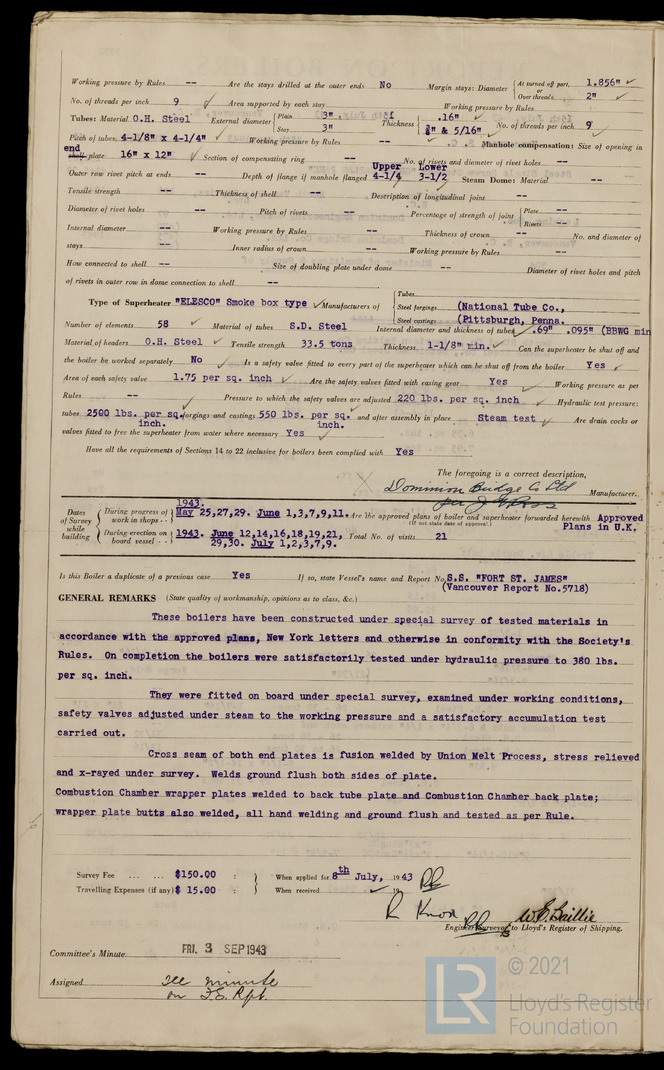 Working pressure by Rules -- Are the stays drilled at the outer ends No Margin stays: Diameter { At turned off part, 1.856" ✓
or Over threads 2" ✓
No. of threads per inch 9 ✓ Area supported by each stay Working pressure by Rules
Tubes: Material O.H. Steel External diameter { Plain 3" Stay 3" Thickness { .16" ¼" & 5/16" ✓ No. of threads per inch 9
Pitch of tubes 4-1/8" x 4-1/4" ✓ Working pressure by Rules -- Manhole compensation: Size of opening in
end
shell plate 16" x 12" ✓ Section of compensating ring -- No. of rivets and diameter of rivet holes --
Outer row rivet pitch at ends -- Depth of flange if manhole flanged Upper 4-1/4 Lower 3-1/2 Steam Dome: Material --
Tensile strength -- Thickness of shell -- Description of longitudinal joint --
Diameter of rivet holes -- Pitch of rivets -- Percentage of strength of joint { Plate -- Rivets --
Internal diameter -- Working pressure by Rules -- Thickness of crown -- No. and diameter of
stays -- Inner radius of crown -- Working pressure by Rules --
How connected to shell -- Size of doubling plate under dome -- Diameter of rivet holes and pitch
of rivets in outer row in dome connection to shell --
Type of Superheater "ELESCO" Smoke box type ✓ Manufacturers of { Tubes Steel forgings Steel castings (National Tube Co., (Pittsburgh, Penns.
Number of elements 58 ✓ Material of tubes S.D. Steel Internal diameter and thickness of tubes .69" .095" (BBWG min
Material of headers O.H. Steel ✓ Tensile strength 33.5 tons Thickness 1-1/8" min. ✓ Can the superheater be shut off and
the boiler be worked separately No ✓ Is a safety valve fitted to every part of the superheater which can be shut off from the boiler Yes ✓
Area of each safety valve 1.75 per sq. inch ✓ Are the safety valves fitted with easing gear Yes ✓ Working pressure as per
Rules -- Pressure to which the safety valves are adjusted 220 lbs. per sq. inch ✓ Hydraulic test pressure:
tubes 2500 lbs. per sq. inch. forgings and castings 550 lbs. per sq. inch. and after assembly in place Steam test ✓ Are drain cocks or
valves fitted to free the superheater from water where necessary Yes ✓
Have all the requirements of Sections 14 to 22 inclusive for boilers been complied with Yes
The foregoing is a correct description,
Dominion Bridge Co Ltd Manufacturer.
Dates of Survey while building { During progress of work in shops - - } 1943. May 25,27,29. June 1,3,7,9,11. Are the approved plans of boiler and superheater forwarded herewith Approved
(If not state date of approval.) Plans in U.K.
{ During erection on board vessel - - } 1943. June 12,14,16,18,19,21, 29,30. July 1,2,3,7,9. Total No. of visits 21
Is this Boiler a duplicate of a previous case Yes If so, state Vessel's name and Report No. S.S. "FORT ST. JAMES"
(Vancouver Report No.5718)
GENERAL REMARKS (State quality of workmanship, opinions as to class, &c.)
These boilers have been constructed under special survey of tested materials in
accordance with the approved plans, New York letters and otherwise in conformity with the Society's
Rules. On completion the boilers were satisfactorily tested under hydraulic pressure to 380 lbs.
per sq. inch.
They were fitted on board under special survey, examined under working conditions,
safety valves adjusted under steam to the working pressure and a satisfactory accumulation test
carried out.
Cross seam of both end plates is fusion welded by Union Melt Process, stress relieved
and x-rayed under survey. Welds ground flush both sides of plate.
Combustion Chamber wrapper plates welded to back tube plate and Combustion Chamber back plate;
wrapper plate butts also welded, all hand welding and ground flush and tested as per Rule.
Survey Fee ... ... $150.00 : } When applied for 8th July, 1943
Travelling Expenses (if any) $ 15.00 : } When received 19
W.E. Baillie
Engineer Surveyor to Lloyd's Register of Shipping.
Committee's Minute FRI. 3 SEP 1943
Assigned see minute
on F.E. Rpt.
LR © 2021
Lloyd's Register
Foundation